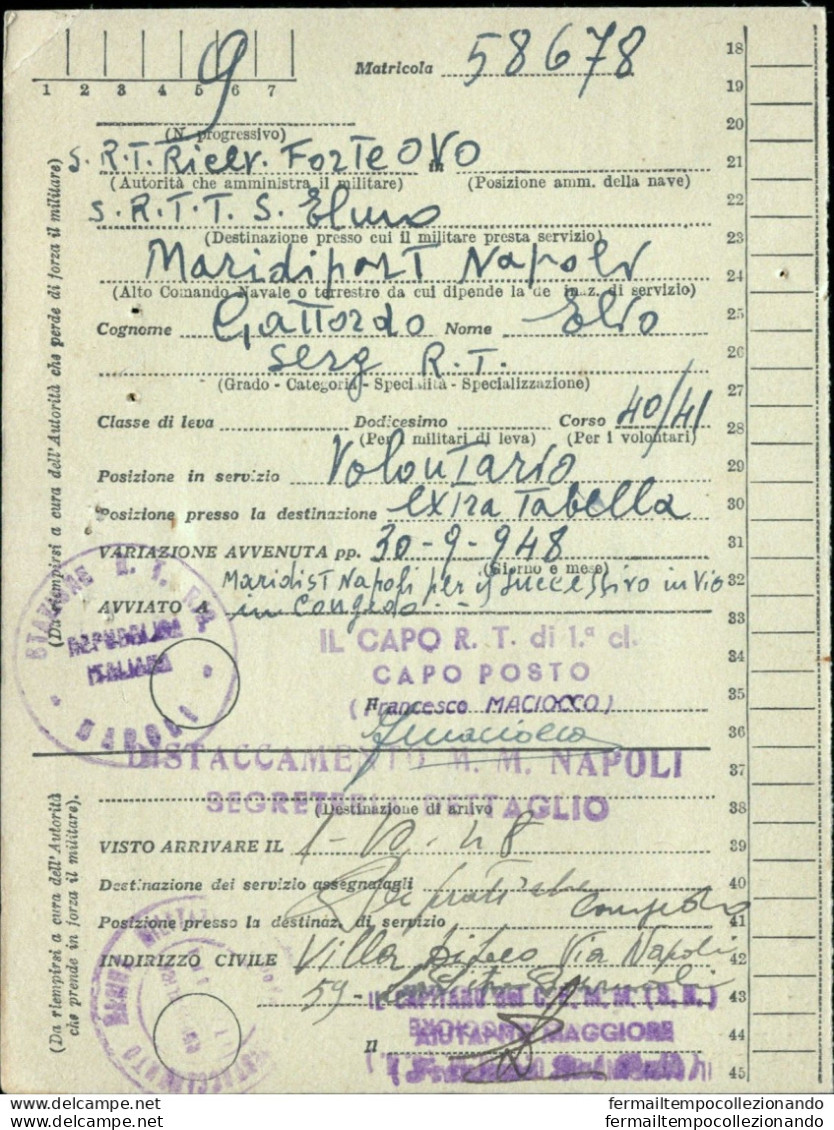 9
1 2 3 4 5 6 7
Matricola 58678
(N. progressivo)
S. R.T. Ricev. Forte OVO in
(Autorità che amministra il militare) (Posizione amm. della nave)
S. R. T. T. S. Elmo
(Destinazione presso cui il militare presta servizio)
Maridiport Napoli
(Alto Comando Navale o terrestre da cui dipende la de inaz. di servizio)
Cognome Gattordo Nome Elio
Serg R.T.
(Grado - Categoria - Specialità - Specializzazione)
Classe di leva Dodicesimo Corso 40/41
(Per militari di leva) (Per i volontari)
Posizione in servizio Volontario
Posizione presso la destinazione extra Tabella
VARIAZIONE AVVENUTA pp. 30-9-948
(Giorno e mese)
Maridist Napoli per il successivo invio
AVVIATO A in Congedo
(Da riempirsi a cura dell'Autorità che perde di forza il militare)
STAZIONE R. T.
REPUBBLICA
ITALIANA
NAPOLI
IL CAPO R. T. di 1.ª cl.
CAPO POSTO
(Francesco MACIOCCO)
DISTACCAMENTO M. M. NAPOLI
SEGRETERIA DETTAGLIO
(Destinazione di arrivo
VISTO ARRIVARE IL 1-10-48
Destinazione dei servizio assegnatagli
Posizione presso la destinaz. di servizio Congedo
INDIRIZZO CIVILE Villa Via Napoli
59-
IL CAPITANO del C.E.M.M. (S.N.)
AIUTANTE MAGGIORE
Il
(Da riempirsi a cura dell'Autorità
che prende in forza il militare).
DISTACCAMENTO MARINA MILITARE
18
19
20
21
22
23
24
25
26
27
28
29
30
31
32
33
34
35
36
37
38
39
40
41
42
43
44
45
fermailtempocollezionando fermailtempocollezionando
fermailtempocollezionando fermailtempocollezionando